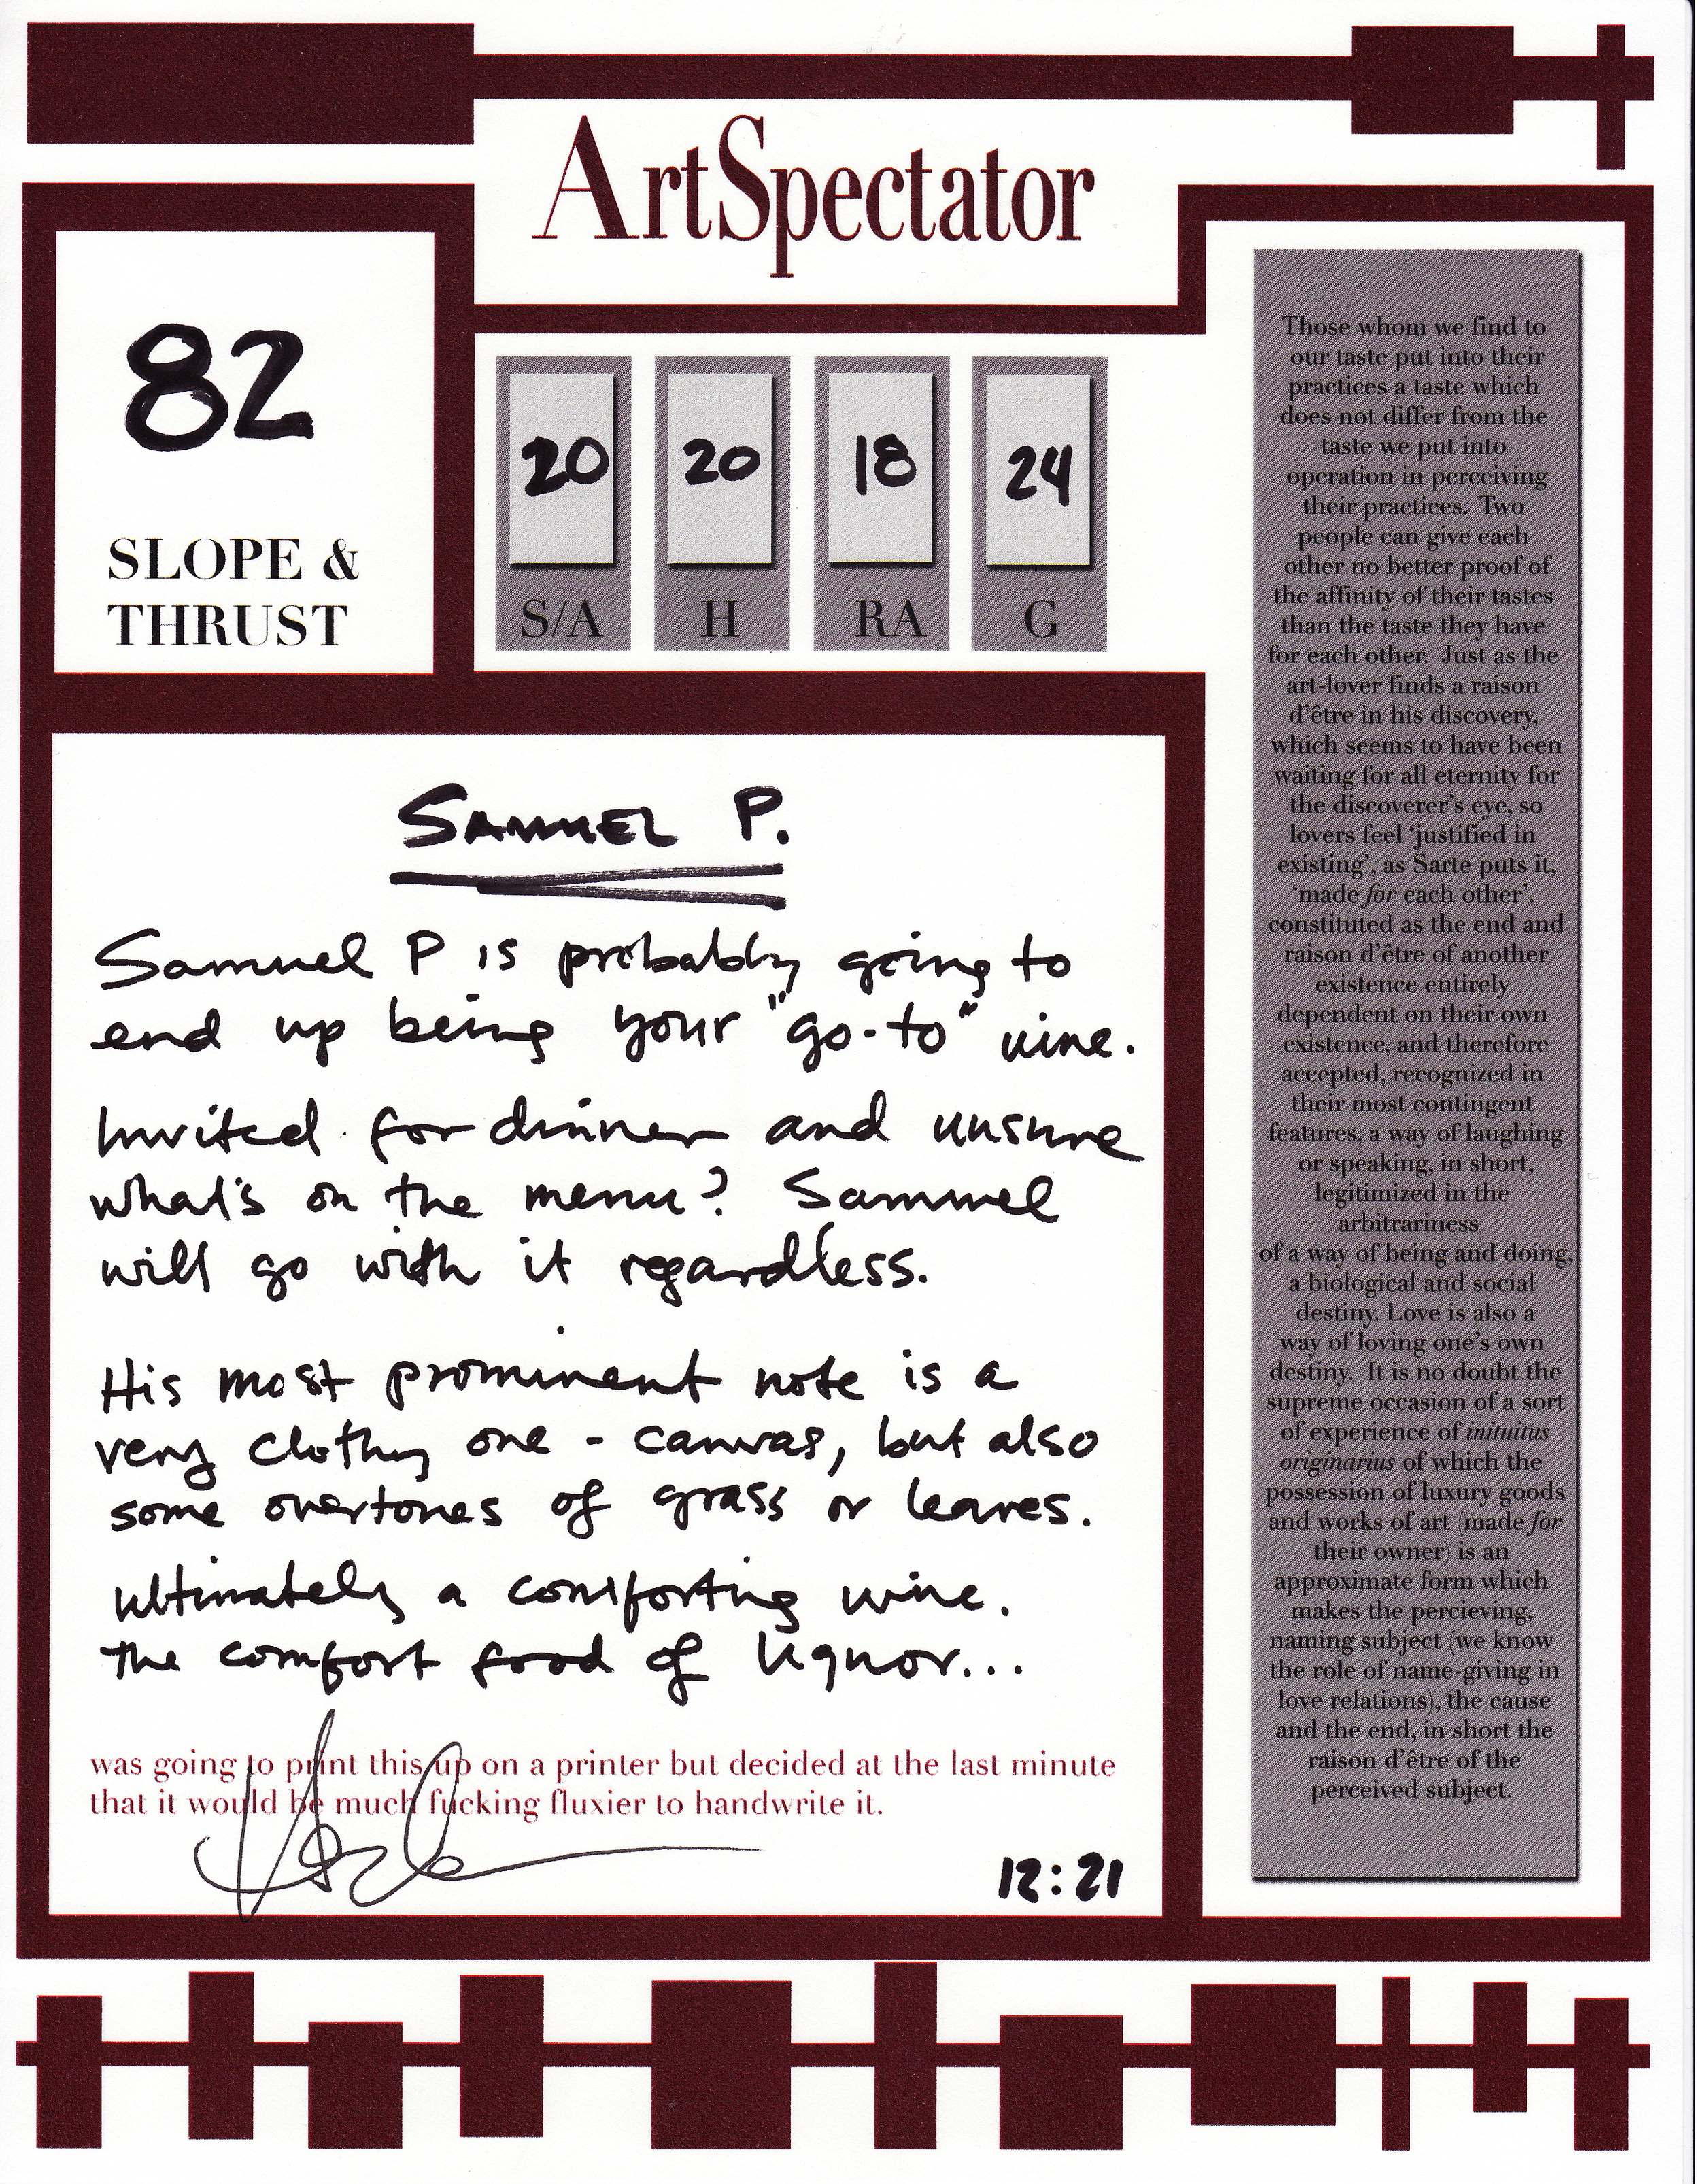 ArtSpectator
82
SLOPE &
THRUST
20
S/A
20
H
18
RA
24
G
SAMUEL P.
Samuel P is probably going to
end up being your "go-to" wine.
Invited for dinner and unsure
what's on the menu? Samuel
will go with it regardless.
His most prominent note is a
very clothy one - canvas, but also
some overtones of grass or leaves.
Ultimately a comforting wine.
The comfort food of liquor...
was going to print this up on a printer but decided at the last minute
that it would be much fucking fluxier to handwrite it.
12:21
Those whom we find to
our taste put into their
practices a taste which
does not differ from the
taste we put into
operation in perceiving
their practices. Two
people can give each
other no better proof of
the affinity of their tastes
than the taste they have
for each other. Just as the
art-lover finds a raison
d'être in his discovery,
which seems to have been
waiting for all eternity for
the discoverer's eye, so
lovers feel 'justified in
existing', as Sarte puts it,
'made for each other',
constituted as the end and
raison d'être of another
existence entirely
dependent on their own
existence, and therefore
accepted, recognized in
their most contingent
features, a way of laughing
or speaking, in short,
legitimized in the
arbitrariness
of a way of being and doing,
a biological and social
destiny. Love is also a
way of loving one's own
destiny. It is no doubt the
supreme occasion of a sort
of experience of inituitus
originarius of which the
possession of luxury goods
and works of art (made for
their owner) is an
approximate form which
makes the percieving,
naming subject (we know
the role of name-giving in
love relations), the cause
and the end, in short the
raison d'être of the
perceived subject.